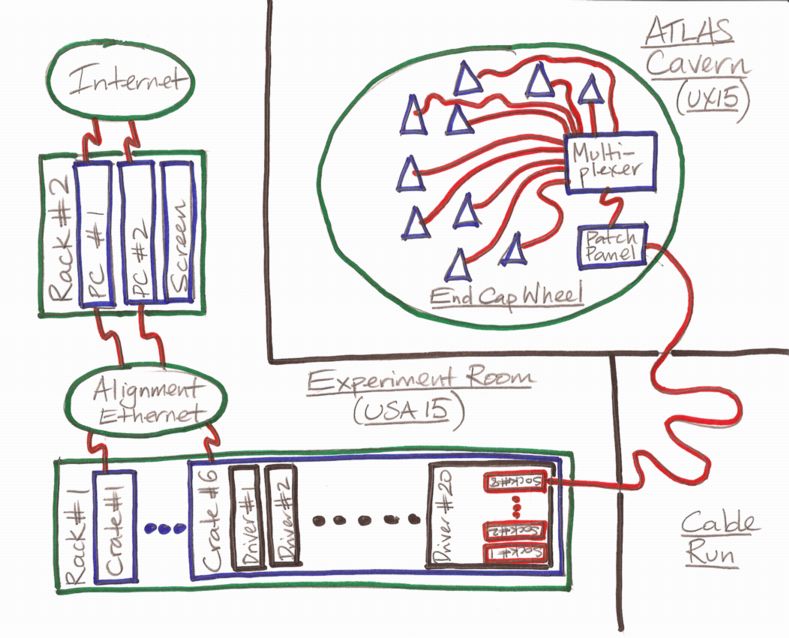 ATLAS
Cavern
(UX15)
Internet
Multi-
plexer
Rack #2
PC #1
PC #2
Screen
Patch
Panel
End Cap Wheel
Experiment Room
(USA15)
Alignment
Ethernet
Rack #1
Crate #1
Crate #6
Driver #1
Driver #2
Driver #20
Sock #8
Sock #2
Sock #1
Cable
Run